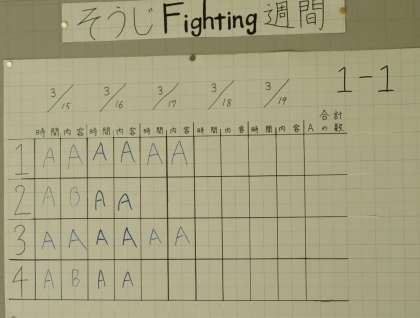 そうじFighting週間
1-1
3/15 3/16 3/17 3/18 3/19
時間 内容 時間 内容 時間 内容 時間 内容 時間 内容 Aの合計数
1 A A A A A A
2 A B A A
3 A A A A A A
4 A B A A